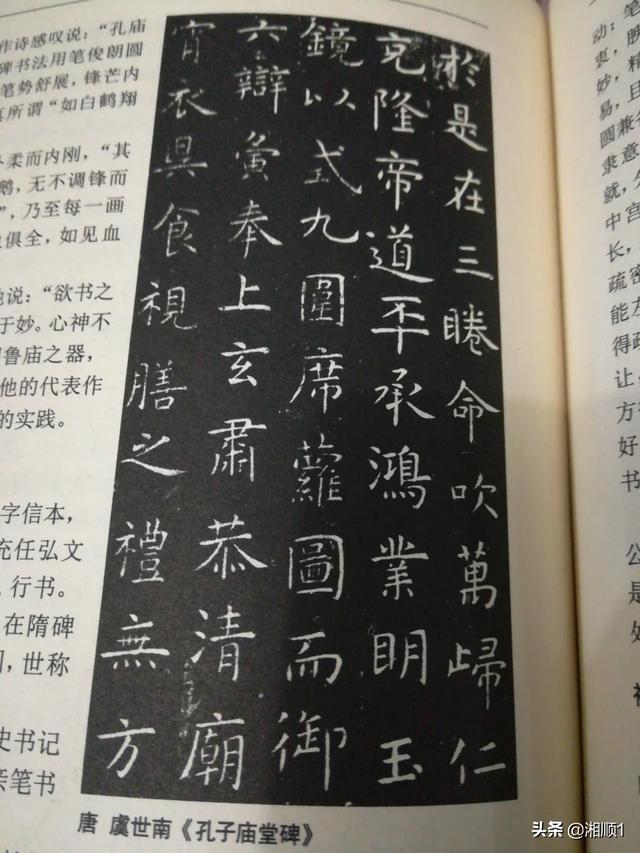 作诗感叹说：“孔庙
碑书法用笔俊朗圆
笔势舒展，锋芒内
所谓“如白鹤翔
柔而内刚，“其
鹅，无不调锋而
”，乃至每一画
俱全，如见血
说：“欲书之
于妙。心神不
鲁庙之器，
他的代表作
的实践。
字信本，
充任弘文
，行书。
在隋碑
，世称
史书记
亲笔书
於是在三睠命吹萬歸仁
克隆帝道丕承鴻業明玉
鏡以式九圍席蘿圖而御
六辯寅奉上玄肅恭清廟
宵衣昃食視膳之禮無方
唐 虞世南《孔子庙堂碑》
动：笔
衷，腕
妙，精
易，且
圆兼
隶意
就，
中宫
长，
疏密
能左
得疏
让
方
好
书
公
是
处
头条 @湘顺1